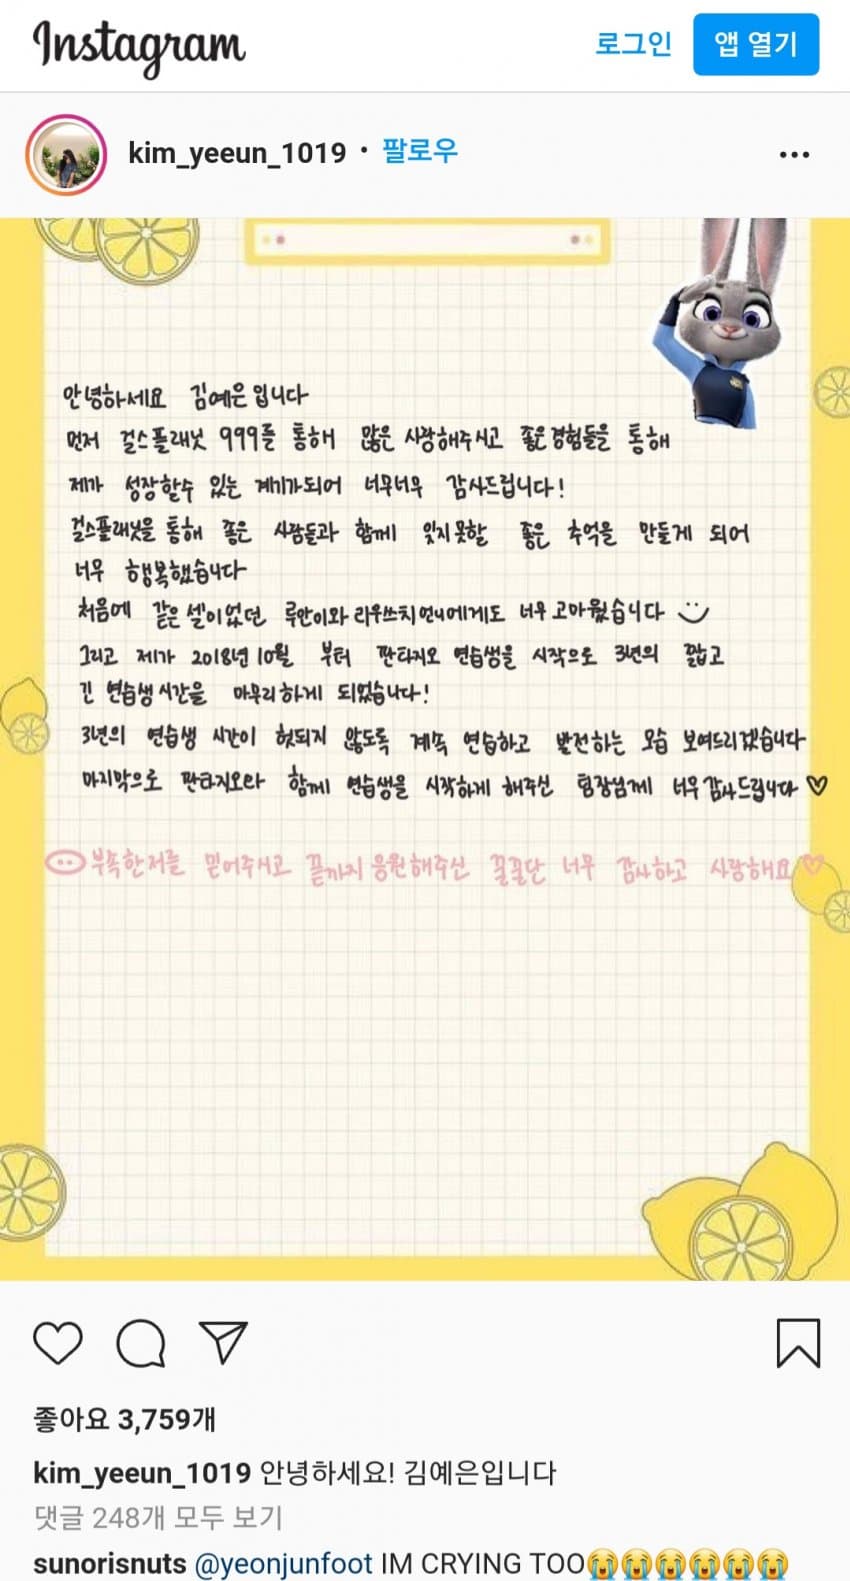 Instagram
로그인
앱 열기
kim_yeeun_1019 • 팔로우
안녕하세요 김예은입니다
먼저 걸스플래닛 999를 통해 많은 사랑해주시고 좋은경험들을 통해
제가 성장할수 있는 계기가되어 너무너무 감사드립니다!
걸스플래닛을 통해 좋은 사람들과 함께 잊지못할 좋은 추억을 만들게 되어
너무 행복했습니다
처음에 같은 셀이었던 루안이와 리우쓰치언니에게도 너무 고마웠습니다
그리고 제가 2018년 10월 부터 판타지오 연습생을 시작으로 3년의 짧고
긴 연습생 시간을 마무리하게 되었습니다!
3년의 연습생 시간이 헛되지 않도록 계속 연습하고 발전하는 모습 보여드리겠습니다
마지막으로 판타지오와 함께 연습생을 시작하게 해주신 팀장님께 너무 감사드립니다♡
부족한저를 믿어주시고 끝까지 응원해주신 꿀꿀단 너무 감사하고 사랑해요♡
좋아요 3,759개
kim_yeeun_1019 안녕하세요! 김예은입니다
댓글 248개 모두 보기
sunorisnuts @yeonjunfoot IM CRYING TOO😭😭😭😭😭😭